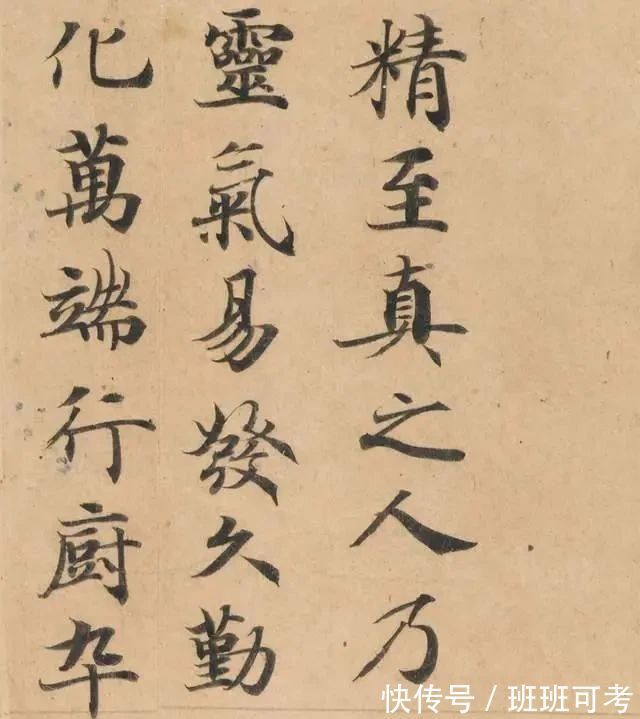 精至真之人乃
靈氣易發久勤
化萬端行廚卆
快传号/班班可考